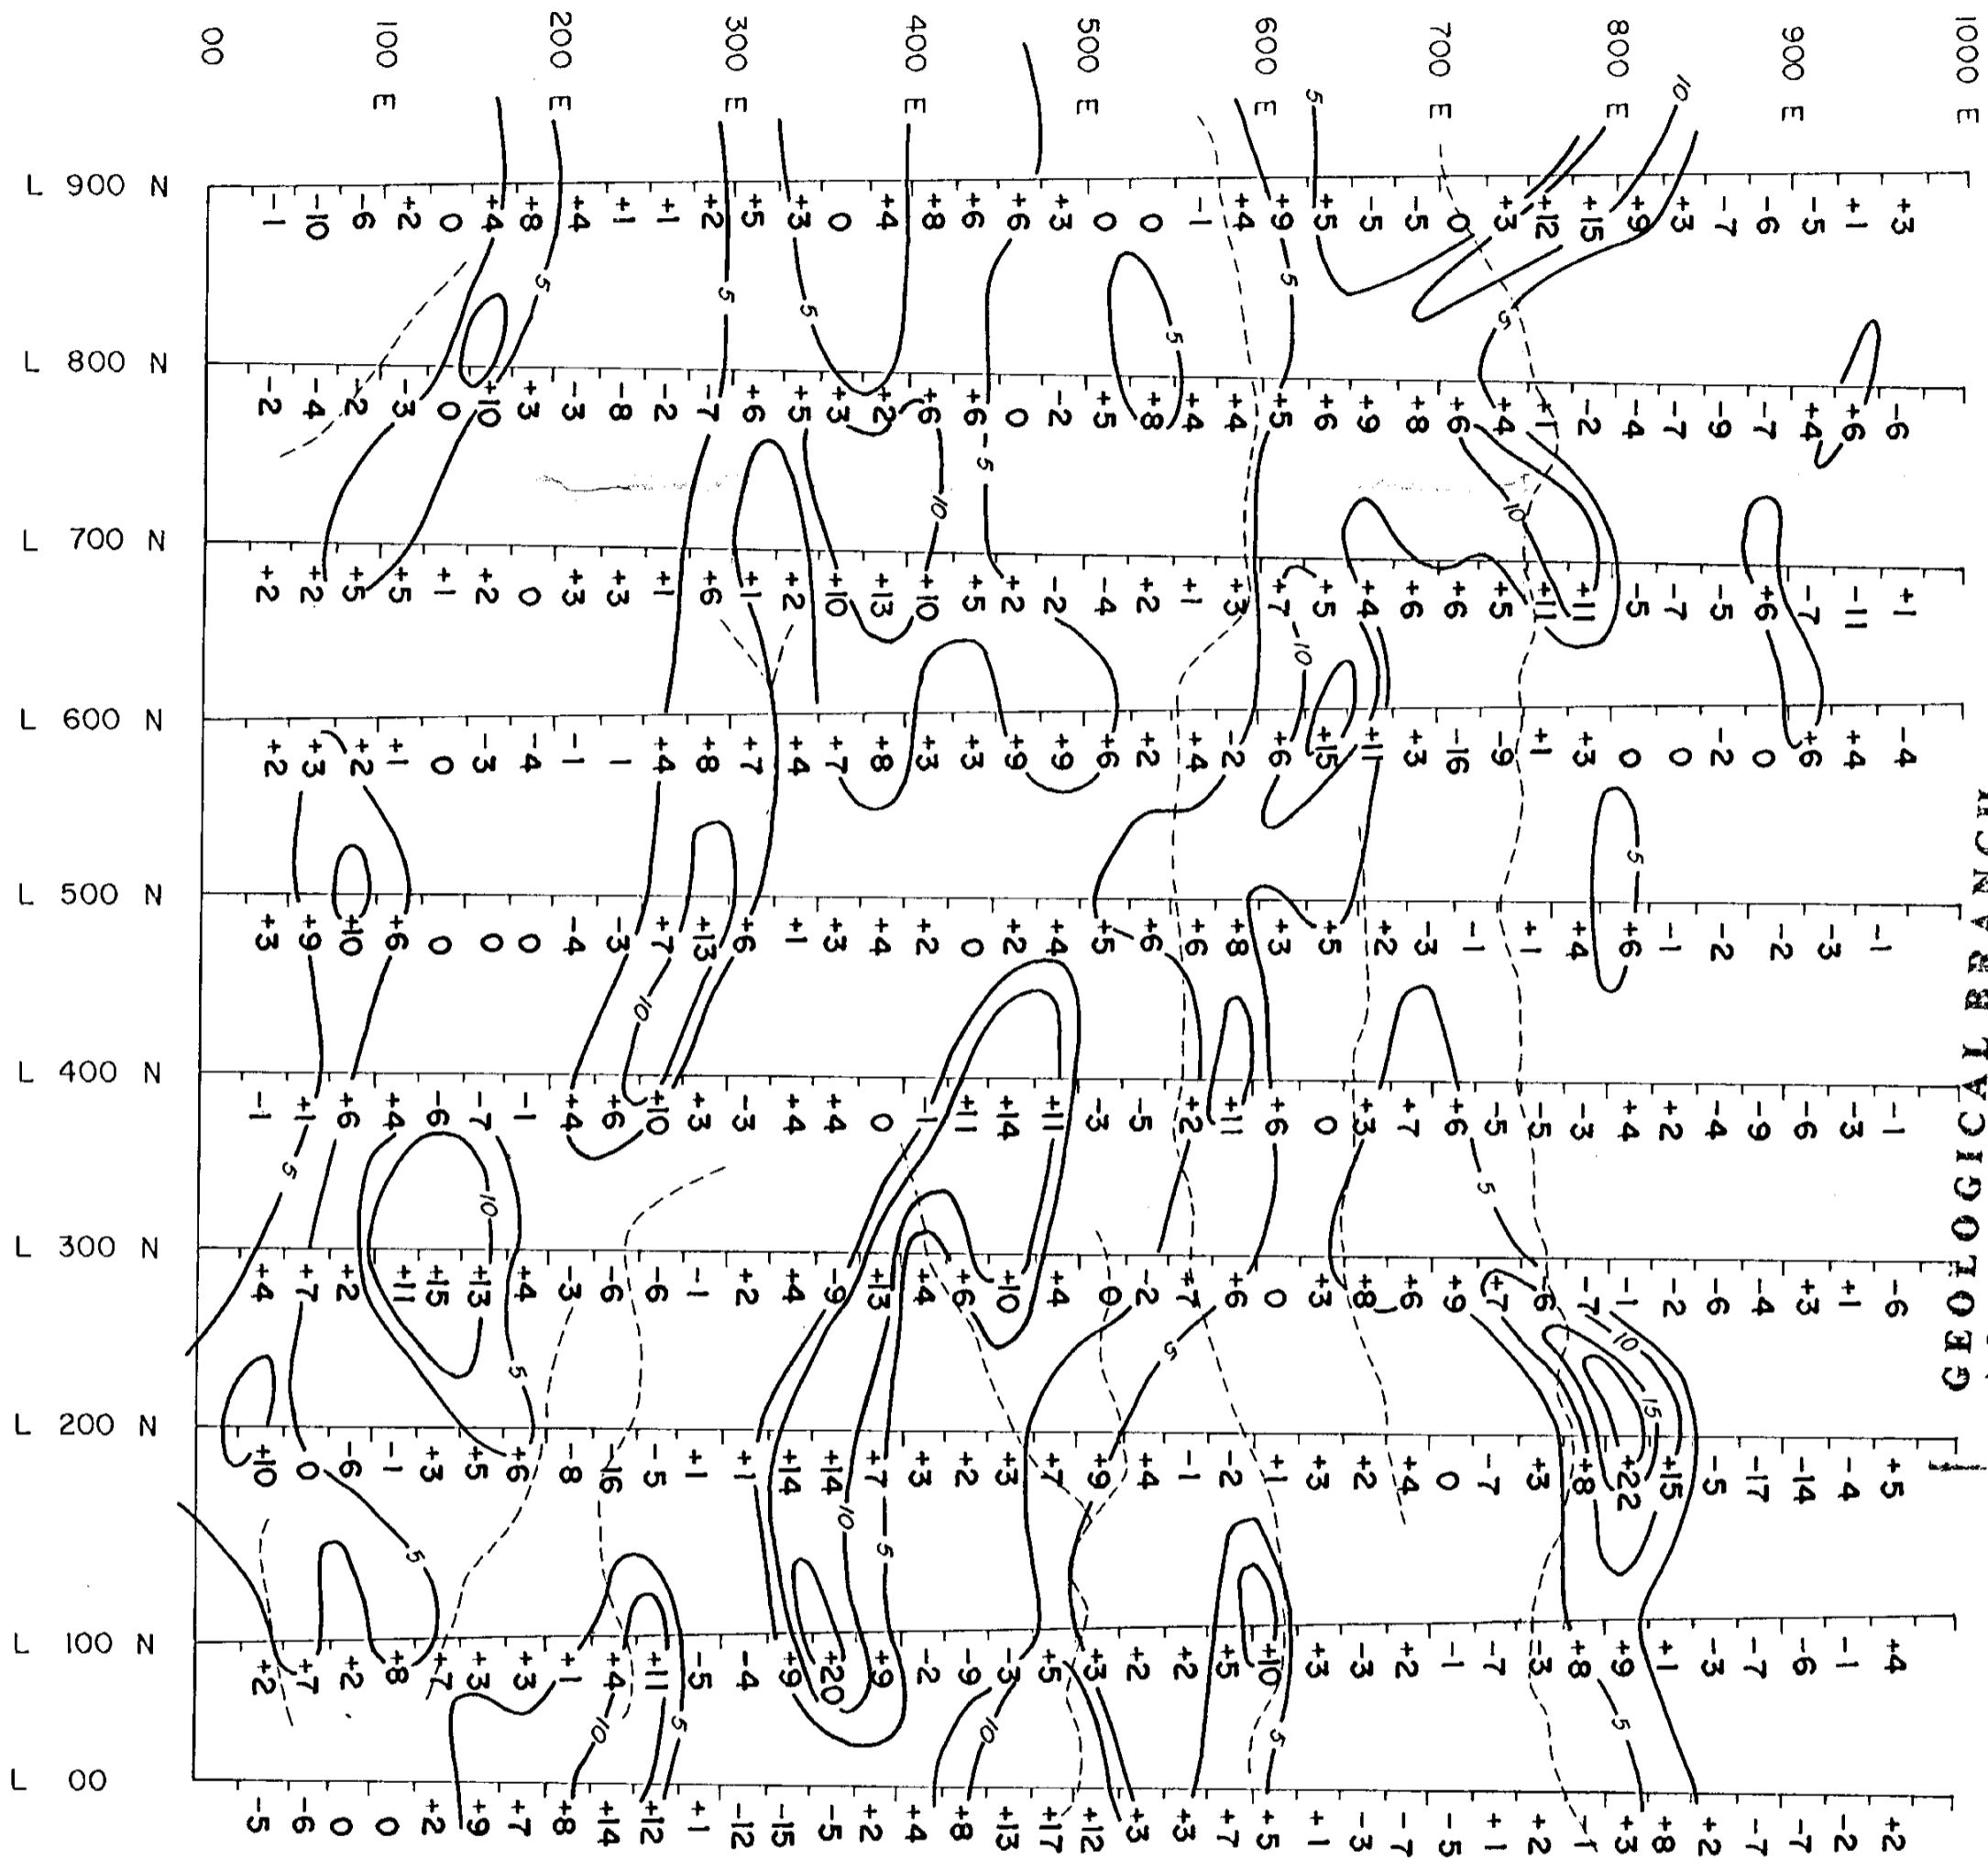 00 100 E 200 E 300 E 400 E 500 E 600 E 700 E 800 E 900 E 1000 E
5 10
L 900 N
-1 -10 -6 +2 0 +4 +8 +4 +1 +1 +2 +5 +3 0 +4 +8 +6 +6 +3 0 0 -1 +4 +9 +5 -5 -5 0 +3 +12 +15 +9 +3 -7 -6 -5 +1 +3
5 5 5 5 5 5
L 800 N
-2 -4 -2 -3 0 +10 +3 -3 -8 -2 -7 +6 +5 +3 +2 +6 +6 0 -2 +5 +8 +4 +4 +5 +6 +9 +8 +6 +4 +1 -2 -4 -7 -9 -7 +4 +6 -6
10 5 10
L 700 N
+2 +2 +5 +5 +1 +2 0 +3 +3 +1 +6 +1 +2 +10 +13 +10 +5 +2 -2 -4 +2 +1 +3 +7 +5 +4 +6 +6 +5 +11 +11 -5 -7 -5 +6 -7 -11 +1
10
L 600 N
+2 +3 +2 +1 0 -3 -4 -1 1 +4 +8 +7 +4 +7 +8 +3 +3 +9 +9 +6 +2 +4 -2 +6 +15 +11 +3 -16 -9 +1 +3 0 0 -2 0 +6 +4 -4
5
L 500 N
+3 +9 +10 +6 0 0 0 -4 -3 +7 +13 +6 +1 +3 +4 +2 0 +2 +4 +5 +6 +6 +8 +3 +5 +2 -3 -1 +1 +4 +6 -1 -2 -2 -3 -1
10
L 400 N
-1 +1 +6 +4 -6 -7 -1 +4 +6 +10 +3 -3 +4 +4 0 -1 +11 +14 +11 -3 -5 +2 +11 +6 0 +3 +7 +6 -5 -5 -3 +4 +2 -4 -9 -6 -3 -1
5 10 5
L 300 N
+4 +7 +2 +11 +15 +13 +4 -3 -6 -6 -1 +2 +4 -9 +13 +4 +6 +10 +4 0 -2 +7 +6 0 +3 +8 +6 +9 +7 +6 -7 -1 -2 -6 -4 +3 +1 -6
5 5 10 15
L 200 N
+10 0 -6 -1 +3 +5 +6 -8 -16 -5 +1 +1 +14 +14 +7 +3 +2 +3 +7 +9 +4 -1 -2 +1 +3 +2 +4 0 -7 +3 +8 +22 +15 -5 -17 -14 -4 +5
5 10 5
L 100 N
+2 +7 +2 +8 +7 +3 +3 +1 +4 +11 -5 -4 +9 +20 +9 -2 -9 -3 +5 +3 +2 +2 +5 +10 +3 -3 +2 -1 -7 -3 +8 +9 +1 -3 -7 -6 -1 +4
10 5 10 5 5
L 00
-5 -6 0 0 +2 +9 +7 +8 +14 +12 +1 -12 -15 -5 +2 +4 +8 +13 +17 +12 +3 +3 +7 +5 +1 -3 -7 -5 +1 +2 -1 +3 +8 +2 -7 -7 -2 +2
GEOLOGICAL BRANCH